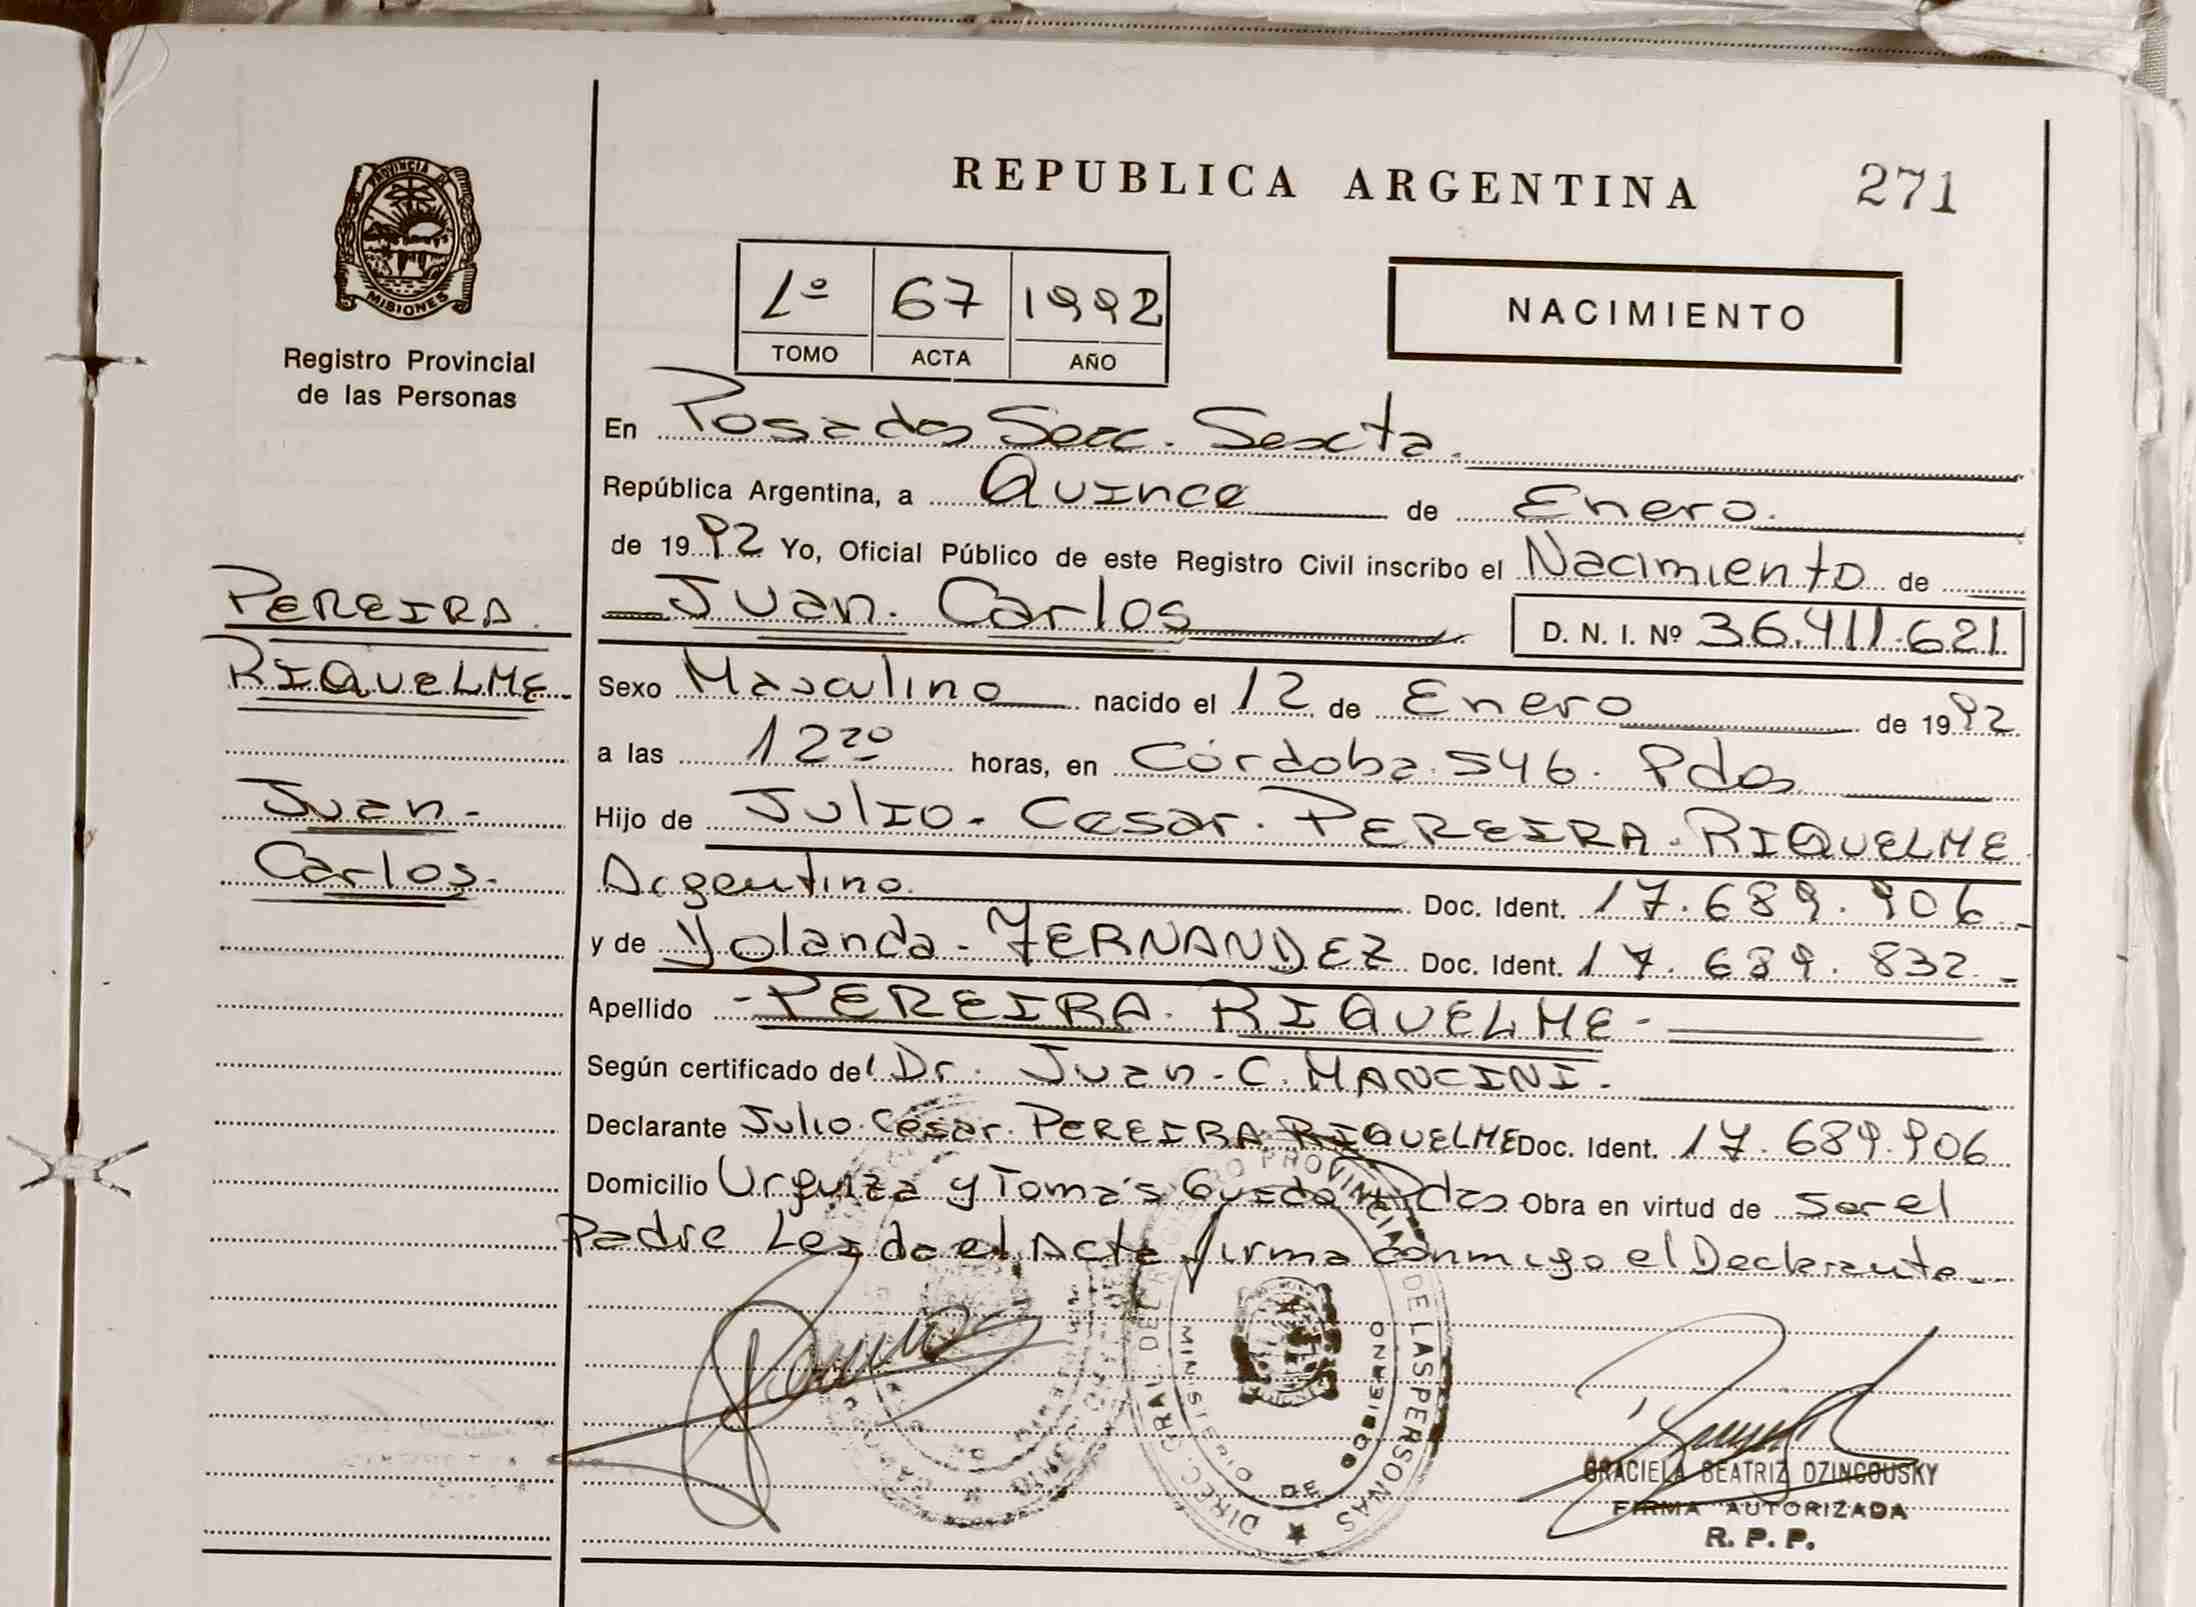 PROVINCIA DE
MISIONES
Registro Provincial
de las Personas
REPUBLICA ARGENTINA 271
1º 67 1992
TOMO ACTA AÑO
NACIMIENTO
En Posadas Secc. Sexta.
República Argentina, a Quince de Enero.
de 1992 Yo, Oficial Público de este Registro Civil inscribo el Nacimiento de
Juan. Carlos D. N. I. Nº 36.411.621
PEREIRA.
RIQUELME-
Juan-
Carlos-
Sexo Masculino nacido el 12 de Enero de 1992
a las 12 20 horas, en Córdoba. 546. Pdas
Hijo de Julio. Cesar. PEREIRA. RIQUELME.
Argentino. Doc. Ident. 17.689.906-
y de Yolanda-FERNANDEZ Doc. Ident. 17.689.832-
Apellido -PEREIRA. RIQUELME-
Según certificado del Dr. Juan-C. MANCINI.
Declarante Julio. César. PEREIRA RIQUELME Doc. Ident. 17.689.906
Domicilio Urquiza y Tomás Guido Pdas Obra en virtud de ser el
Padre Leida el Acta firma conmigo el Declarante
DIREC. GRAL. DEL REGISTRO PROVINCIAL DE LAS PERSONAS
MINISTERIO DE GOBIERNO
GRACIELA BEATRIZ DZINCOUSKY
FIRMA AUTORIZADA
R. P. P.